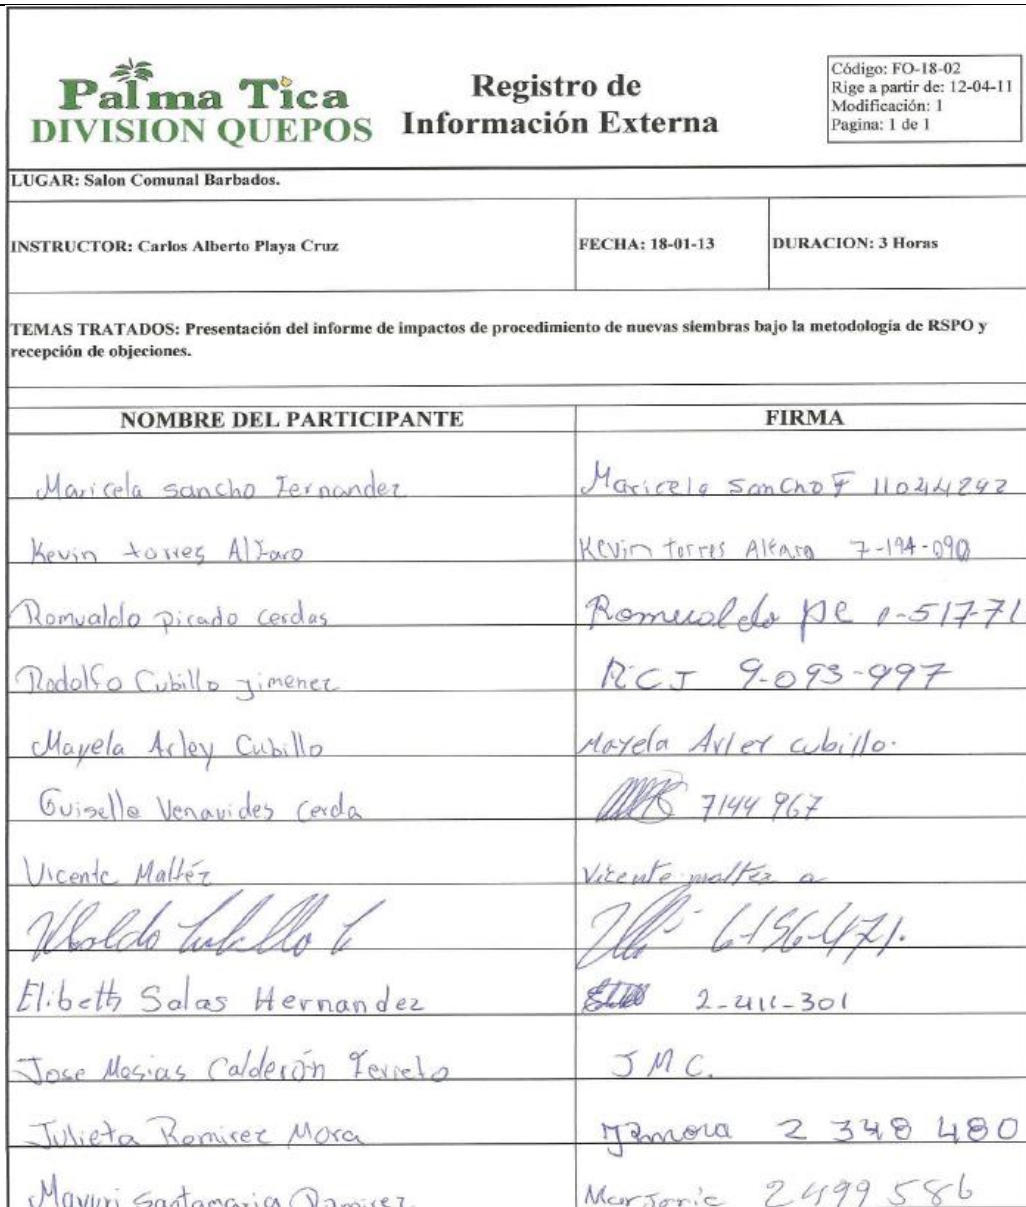 Palma Tica
DIVISION QUEPOS
Registro de
Información Externa
Código: FO-18-02
Rige a partir de: 12-04-11
Modificación: 1
Pagina: 1 de 1
LUGAR: Salon Comunal Barbados.
INSTRUCTOR: Carlos Alberto Playa Cruz
FECHA: 18-01-13
DURACION: 3 Horas
TEMAS TRATADOS: Presentación del informe de impactos de procedimiento de nuevas siembras bajo la metodología de RSPO y
recepción de objeciones.
NOMBRE DEL PARTICIPANTE
FIRMA
Maricela sancho Fernandez
Maricela Sancho F 11044292
Kevin torres Alfaro
Kevin torres Alfaro 7-194-090
Romualdo picado cerdas
Romualdo PC 1-517-71
Rodolfo Cubillo jimenez
RCJ 9-093-997
Mayela Arley Cubillo
Mayela Arley cubillo.
Guiselle Venavides Cerda
7144 967
Vicente Maltéz
Vicente maltez a
Ubaldo Cubillo C
6-156-471.
Elibeth Salas Hernandez
2-411-301
Jose Mesias Calderón Ferreto
J M C.
Julieta Ramirez Mora
2 348 480
Santamaria Ramirez
2499 586